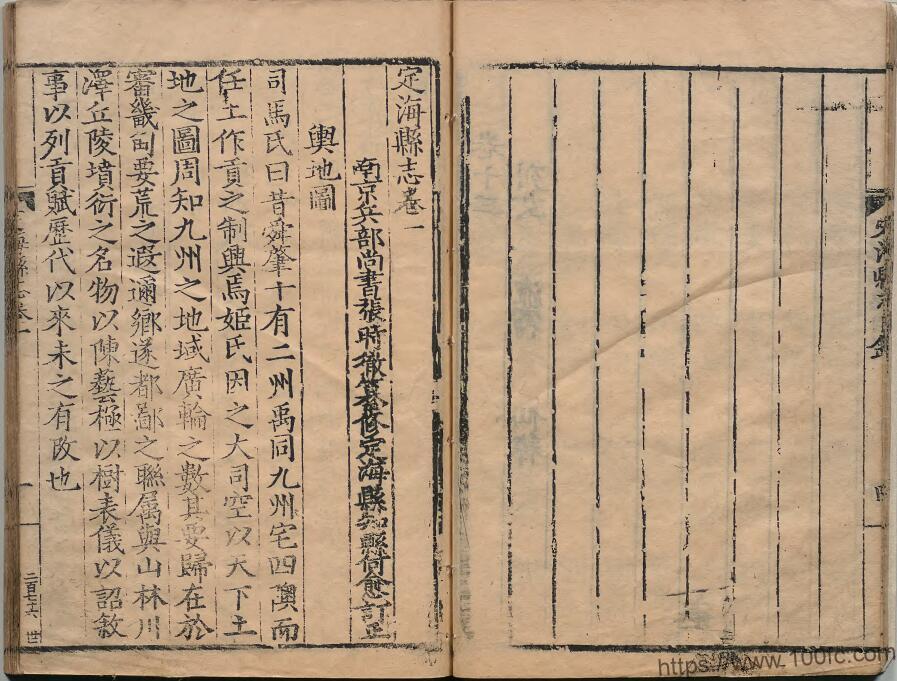 定海縣志卷一
南京兵部尚書張時徹纂修定海縣知縣何愈訂正
輿地圖
司馬氏曰昔舜肇十有二州禹同九州宅四隩而
任土作貢之制興焉姬氏因之大司空以天下土
地之圖周知九州之地域廣輪之數其要歸在於
審畿甸要荒之遐邇鄉遂都鄙之聯屬與山林川
澤丘陵墳衍之名物以陳藝極以樹表儀以詔敘
事以列貢賦歷代以來未之有改也
海縣志卷一
一
二百七十六 世
https://www.100fc.com